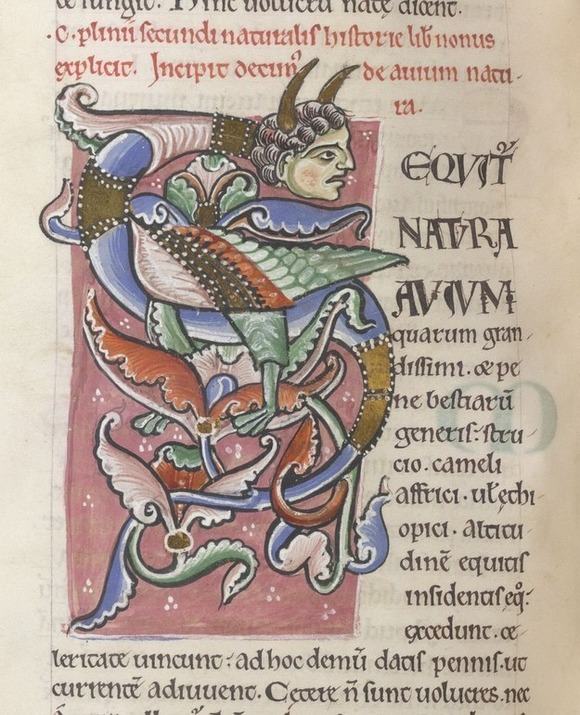 ce fungit. Hinc uolucru nate dicent.
.C. plinii secundi naturalis historie lib nonus
explicit. Incipit decimꝰ de auium natu-
ra.
EQVIT᷑
NATVRA
AVIVM
quarum gran-
dissimi. & pe-
ne bestiarū
generis: stru-
cio. cameli
affrici. ul& ęthi-
opici. altitu-
dinē equitis
insidentis eq̊.
excedunt. ce-
leritate uincunt: ad hoc demū datis pennis. ut
currentē adiuuent. Cetere n̄ sunt uolucres. nec